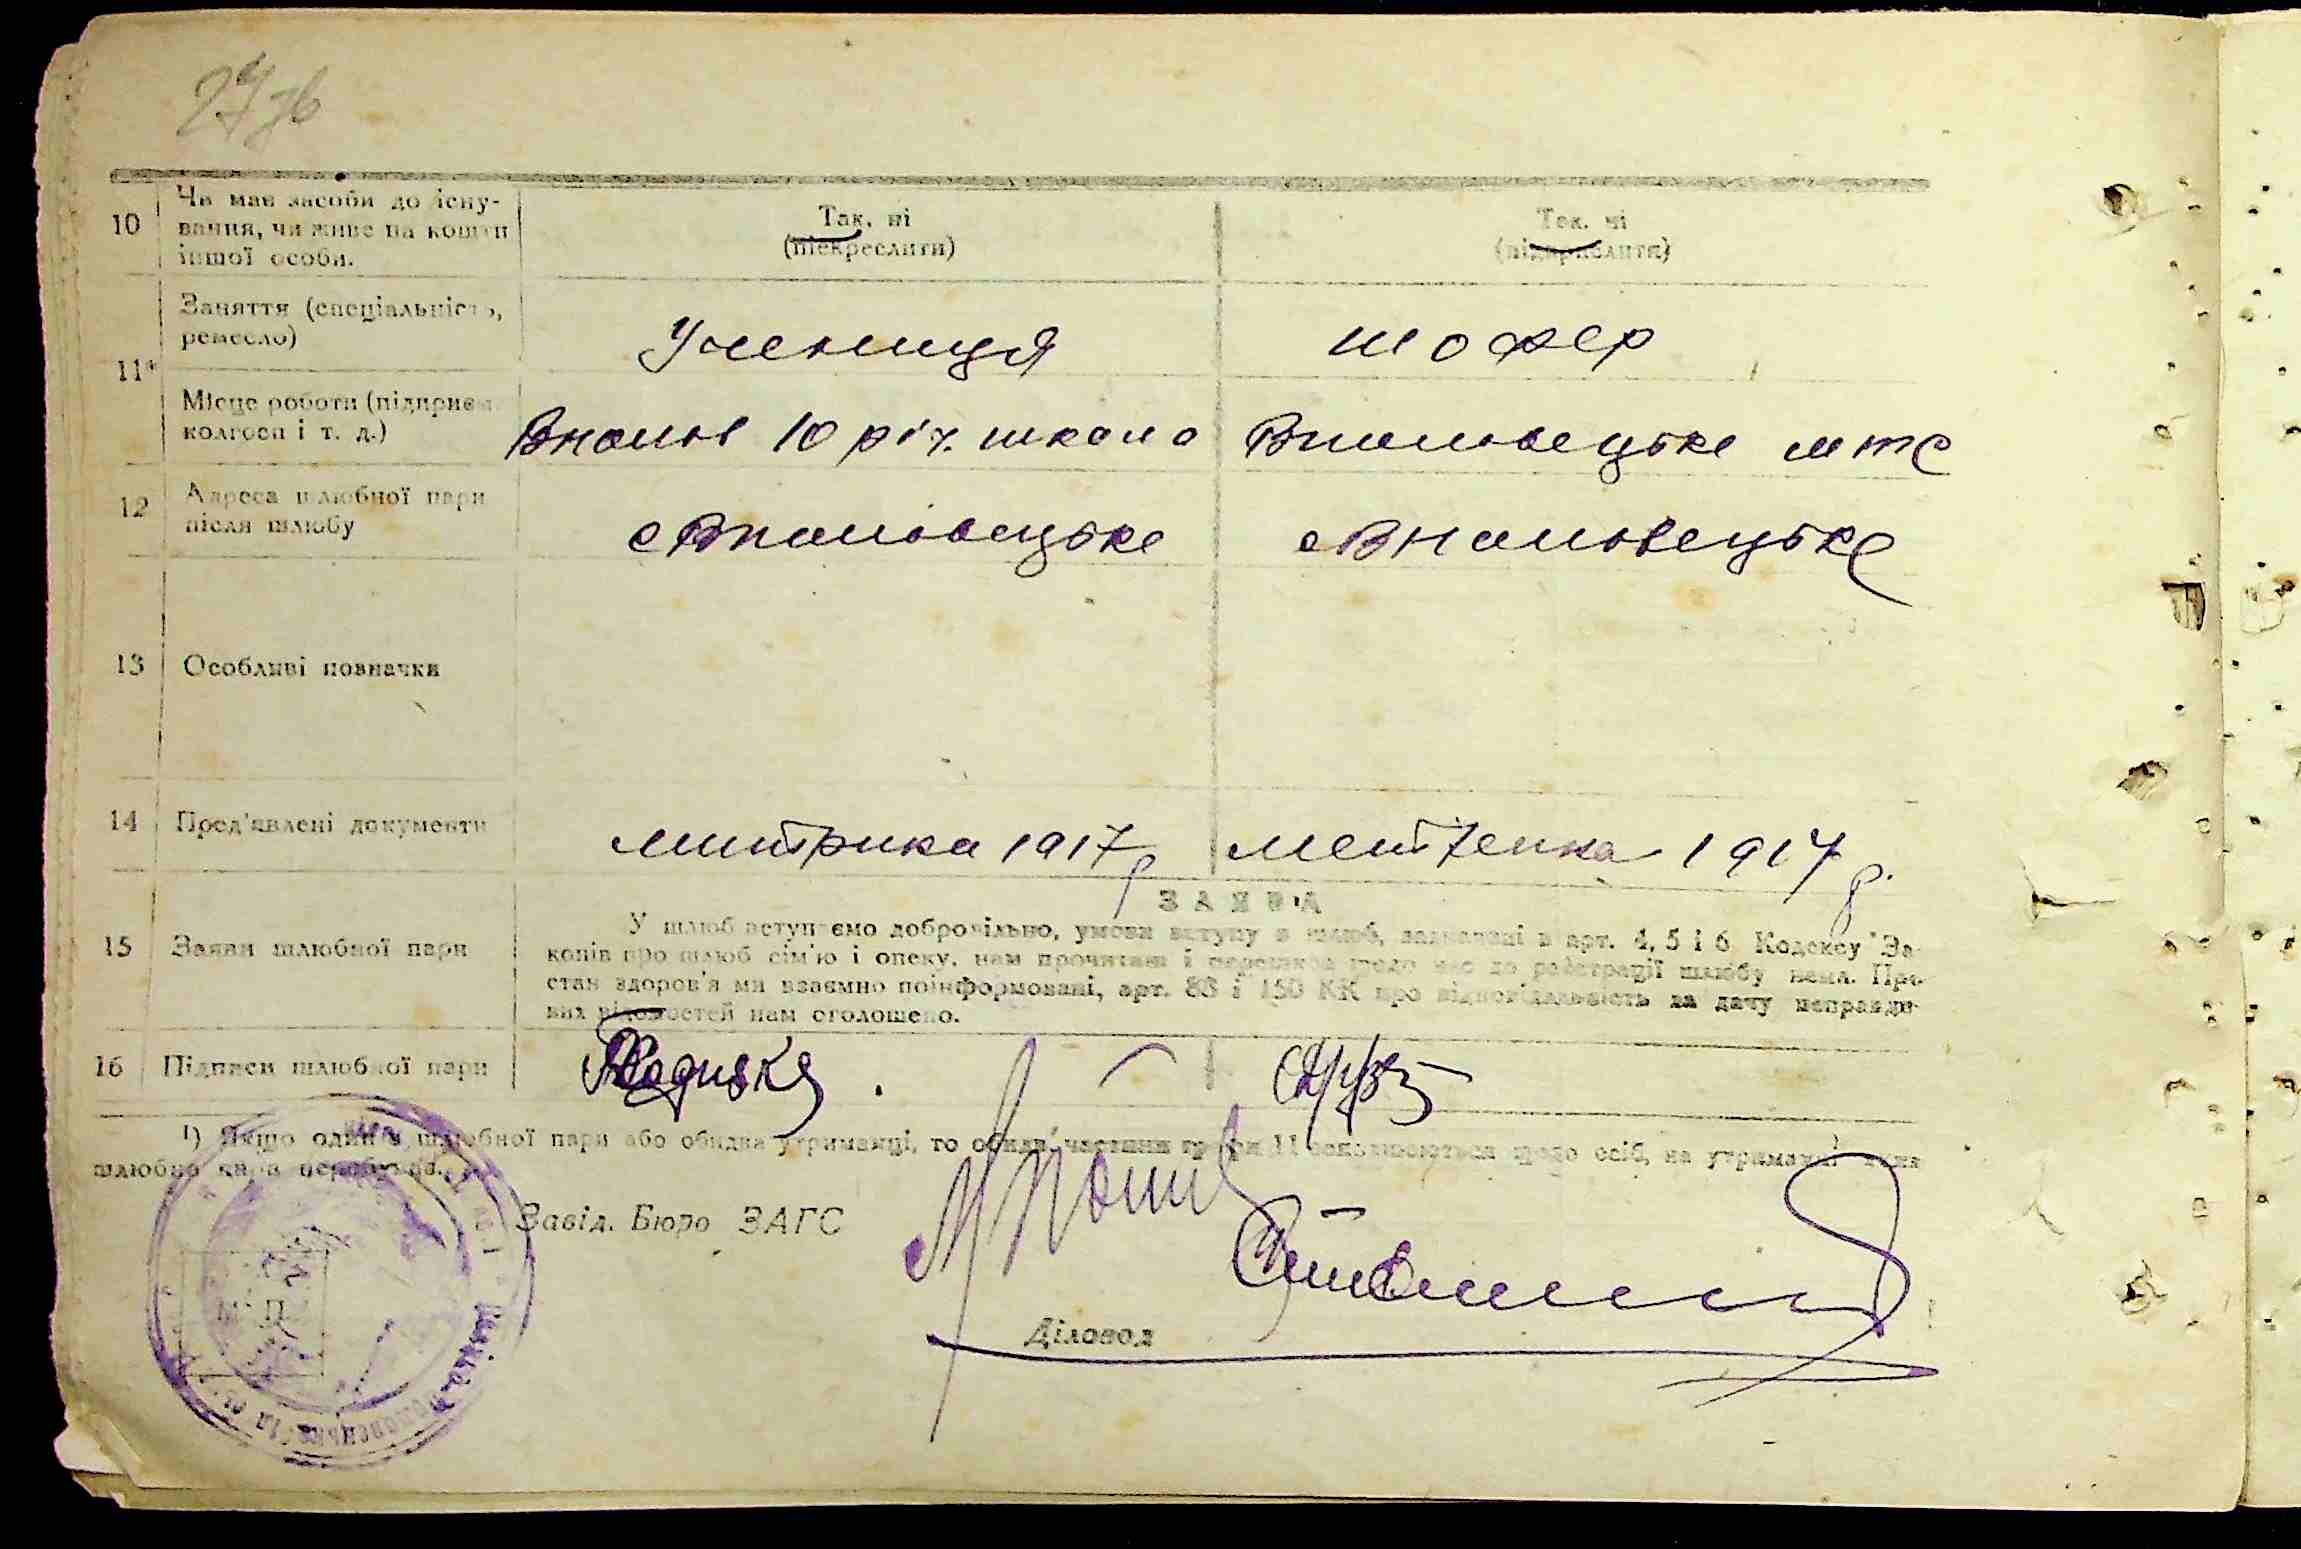 27 зв
10
Чи має засоби до існу-
вання, чи живе на кошти
іншої особи.
Так, ні
(підкреслити)
Так, ні
(підкреслити)
11*
Заняття (спеціальність,
ремесло)
Учениця
шофер
Місце роботи (підприєм.
колгосп і т. д.)
10 річ. школа
мтс
12
Адреса шлюбної пари
після шлюбу
13
Особливі позначки
14
Пред'явлені документи
митрика 1917 р
1917 р.
15
Заяви шлюбної пари
ЗАЯВА
У шлюб вступаємо добровільно, умови вступу в шлюб, зазначені в арт. 4, 5 і 6 Кодексу За-
конів про шлюб сім'ю і опеку, нам прочитані і перешкод щодо нас до реєстрації шлюбу нема. Про
стан здоров'я ми взаємно поінформовані, арт. 88 і 150 КК про відповідальність за дачу неправди-
вих відомостей нам оголошено.
16
Підписи шлюбної пари
¹) Якщо один з шлюбної пари або обидва утриманці, то обидві частини графи 11 заповнюються щодо осіб, на утриманні яких
шлюбна пара перебуває.
Завід. Бюро ЗАГС
М. П.
Діловод